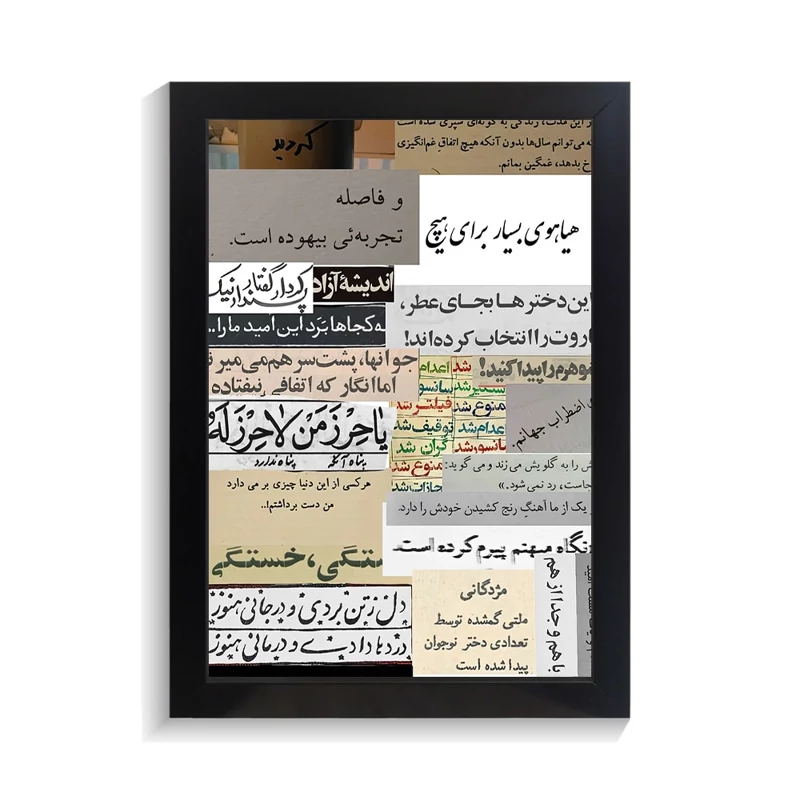 کردید
این مدت، زندگی به گونه‌ای سپری شده است
که می‌توانم سال‌ها بدون آنکه هیچ اتفاقِ غم‌انگیزی
رخ بدهد، غمگین بمانم.
و فاصله
تجربه‌ئی بیهوده است.
هیاهوی بسیار برای هیچ
کردار گفتار
پندار نیک
اندیشهٔ آزاد
به کجاها بَرَد این امید ما را..
این دخترها بجای عطر،
باروت را انتخاب کرده‌اند!
جوانها، پشت سر هم می‌میر
اما انگار که اتفاقی نیفتاده
اعدام شد
سانسو
فیلتر شد
ممنوع شد
توقیف شد
اعدام شد
گران شد
سانسور شد
ممنوع شد
مجازات شد
شوهرم را پیدا کنید!
اضطراب جهانم.
یا حِرْزَ مَنْ لا حِرْزَ لَهُ
پناه آنکه پناه ندارد
هرکسی از این دنیا چیزی بر می دارد
من دست برداشتم!..
را به گلویش می زند و می گوید:
رد نمی‌شود.»
یک از ما آهنگِ رنج کشیدن خودش را دارد.
نگاه میهنم پیرم کرده است
خستگی، خستگی
دل ز تن بردی و در جانی هنوز
دردها دادی و درمانی هنوز
مژدگانی
ملتی گمشده توسط
تعدادی دختر نوجوان
پیدا شده است
با هم و جدا از هم